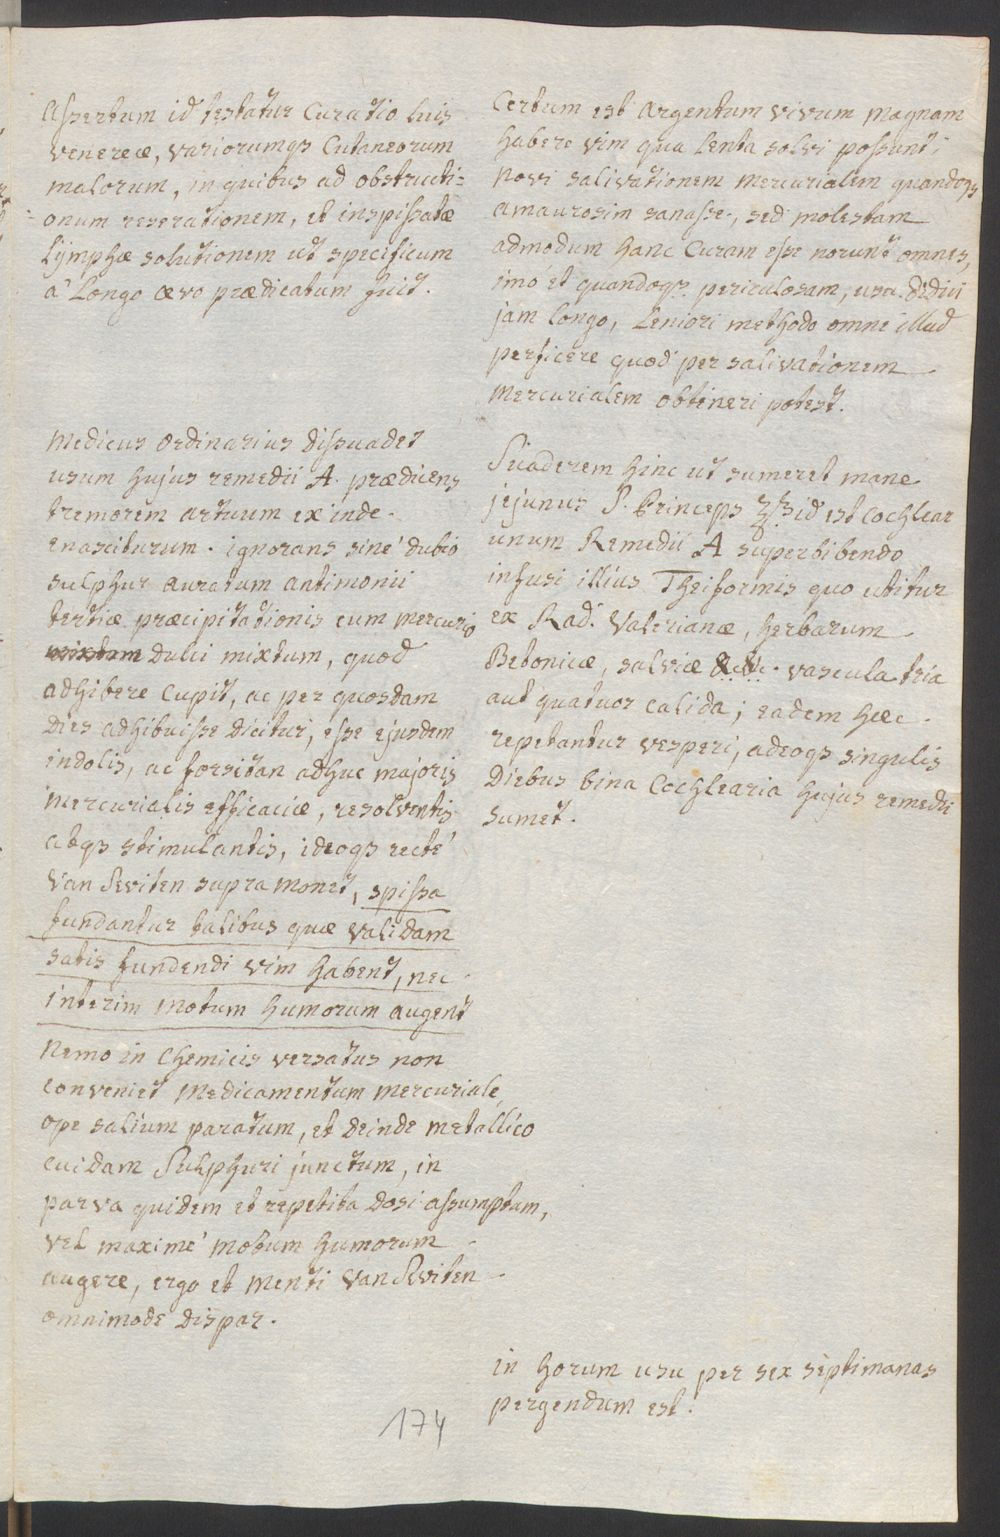 Assertum id testatur Curatio luis
venereæ, variorumqs Cutaneorum
malorum, in quibus ad obstructi=
=onum reserationem, et inspissatæ
Lÿmphæ solutionem ut specificum
à Longo ævo prædicatum fuit.
Medicus Ordinarius dissuadet
usum hujus remedii A. prædicens
tremorem artuum exinde
enasciturum. ignorans sinè dubio
sulphur auratum antimonii
tertiæ præcipitationis cum mercurio
mixtum dulci mixtum, quod
adhibere cupit, ac per quosdam
dies adhibuisse dicitur, esse ejusdem
indolis, ac forsitan adhuc majoris
mercurialis efficaciæ, resolventis
atqs stimulantis, ideoqs rectè
Van Sviten supra monet, spissa
fundantur talibus quæ validam
satis fundendi vim habent, nec
interim motum humorum augent
Nemo in Chemicis versatus non
conveniet medicamentum mercuriale,
ope salium paratum, et deinde metallico
cuidam Sulphuri junctum, in
parva quidem et repetita dosi assumptum,
vel maximè motum humorum
augere, ergo et menti Van Sviten
omnimode dispar.
174
Certum est Argentum vivum magnam
habere vim qua lenta solvi possunt;
novi salivationem mercurialem quandoqs
amaurosim sanasse, sed molestam
admodum hanc Curam esse norunt omnes,
imò et quandoqs periculosam, usu didici
jam longo, Leniori methodo omne illud
perficere quod per salivationem
mercurialem obtineri potest.
Suaderem hinc ut sumeret mane
jejunus S. Princeps ℥ß id est cochlear
unum Remedii A superbibendo
infusi illius Theiformis quo utitur
ex Rad. Valerianæ, herbarum
Betonicæ, salviæ &c. vascula tria
aut quatuor calida; eadem hæc
repetantur vesperi, adeoqs singulis
Diebus bina Cochlearia hujus remedii
sumet.
in horum usu per sex septimanas
pergendum est.